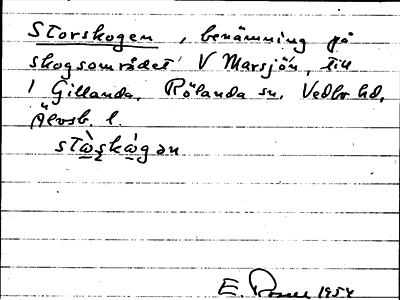 Storskogen, benämning på
skogsområdet V Marsjön, till
1 Gillanda, Rölanda sn, Vedbo hd,
Älvsb. l.
stὼʂkὼgən
E. 1954